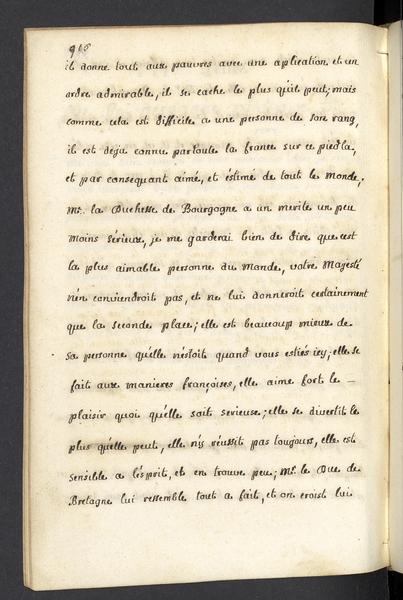 918
il donne tout aux pauvres avec une aplication et un
ordre admirable, il se cache le plus qu'il peut, mais
comme cela est difficile a une personne de son rang,
il est deja connu par toute la france sur ce pied la,
et par consequant aimé, et éstimé de tout le monde,
Me. la Duchesse de Bourgogne a un merite un peu
moins sérieux, je me garderai bien de dire que c'est
la plus aimable personne du Monde, votre Majesté
n'en conviendroit pas, et ne lui donneroit certainement
que la seconde place; elle est beaucoup mieux de
sa personne qu'elle n'estoit quand vous estiés icy, elle se
fait aux manieres françoises, elle aime fort le
plaisir quoi qu'elle soit serieuse; elle se divertit le
plus qu'elle peut, elle n'ÿ réussit pas tougours, elle est
sensible a l'ésprit, et en trouve peu; Mr. le Duc de
Bretagne lui ressemble tout a fait, et on croist lui